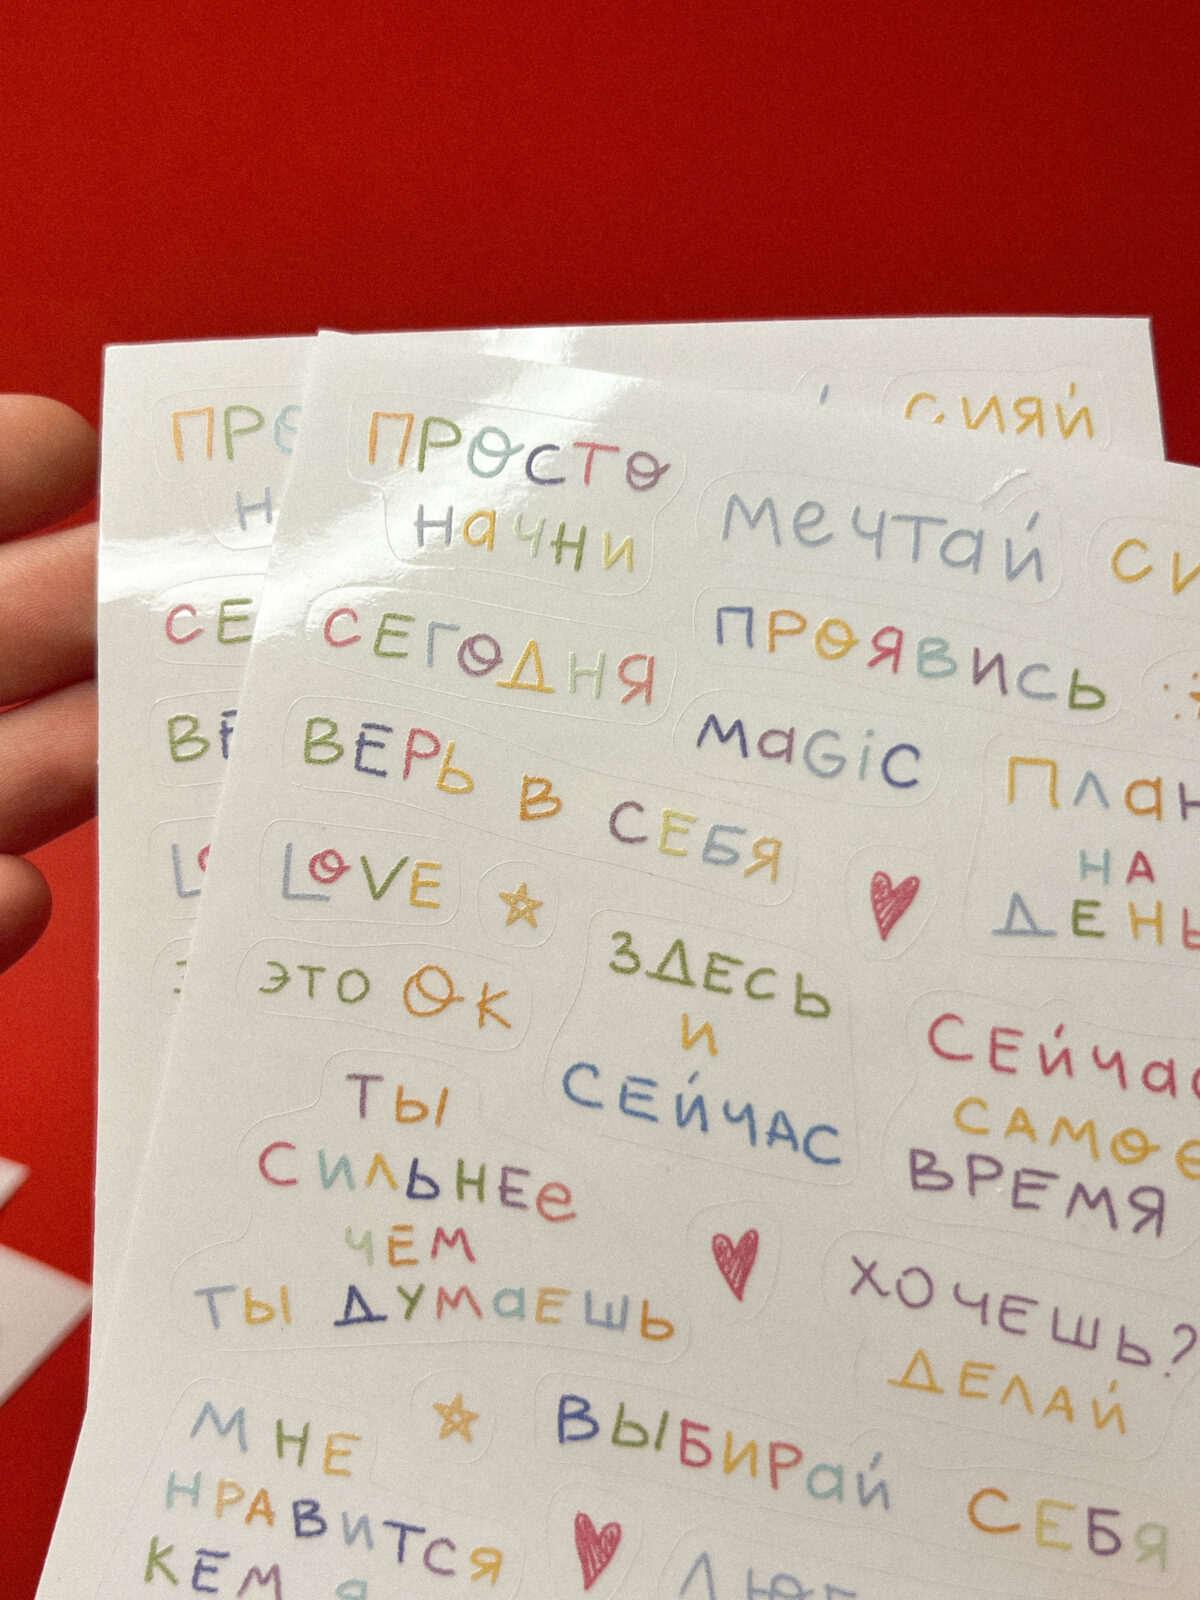 сияй
ПРОСТО
начни
мечтай
СЕГОДНЯ
ПРОЯВИСЬ
ВЕРЬ В СЕБЯ
MaGiC
План
НА
ДЕНЬ
LOVE
ЭТО ОК
ЗДЕСЬ
и
СЕЙЧАС
СЕЙЧАС
САМОЕ
ВРЕМЯ
ТЫ
СИЛЬНЕе
ЧЕМ
ТЫ ДУМаЕШЬ
ХОЧЕШЬ?
ДЕЛАЙ
МНЕ
НРАВИТСЯ
КЕМ Я
ВЫБИРаЙ СЕБЯ